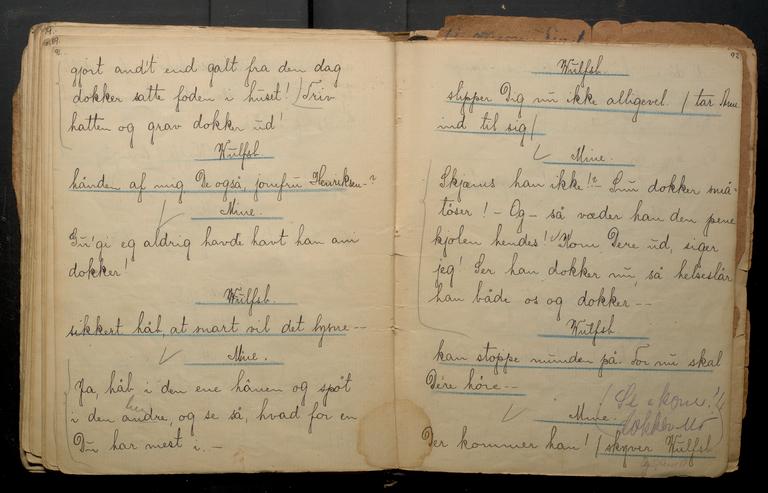 gjort and't end galt fra den dag
dokker satte foden i huset! / Triv
hatten og grav dokker ud!
Wulfsb.
hånden af mig De også, jomfru Henriksen-?
Mine.
Gu' gi eg aldrig havde havt han ani
dokker!
Wulfsb.
sikkert håb, at snart vil det lysne --
Mine.
Ja, håb i den ene hånen og spøt
i den andre, og se så, hvad for en
Du har mest i. -
92
Wulfsb.
slipper Dig nu ikke alligevel. / tar Ane
ind til sig /
Mine.
Skjæms han ikke!? - Snu dokker små-
töser! - Og - så væder han den pene
kjolen hendes! Kom Dere ud, siger
jeg! Ser han dokker nu, så helseslår
han både os og dokker --
Wulfsb.
kan stoppe munden på. For nu skal
Dere höre --
Mine.
Der kommer han! / skyver Wulfsb